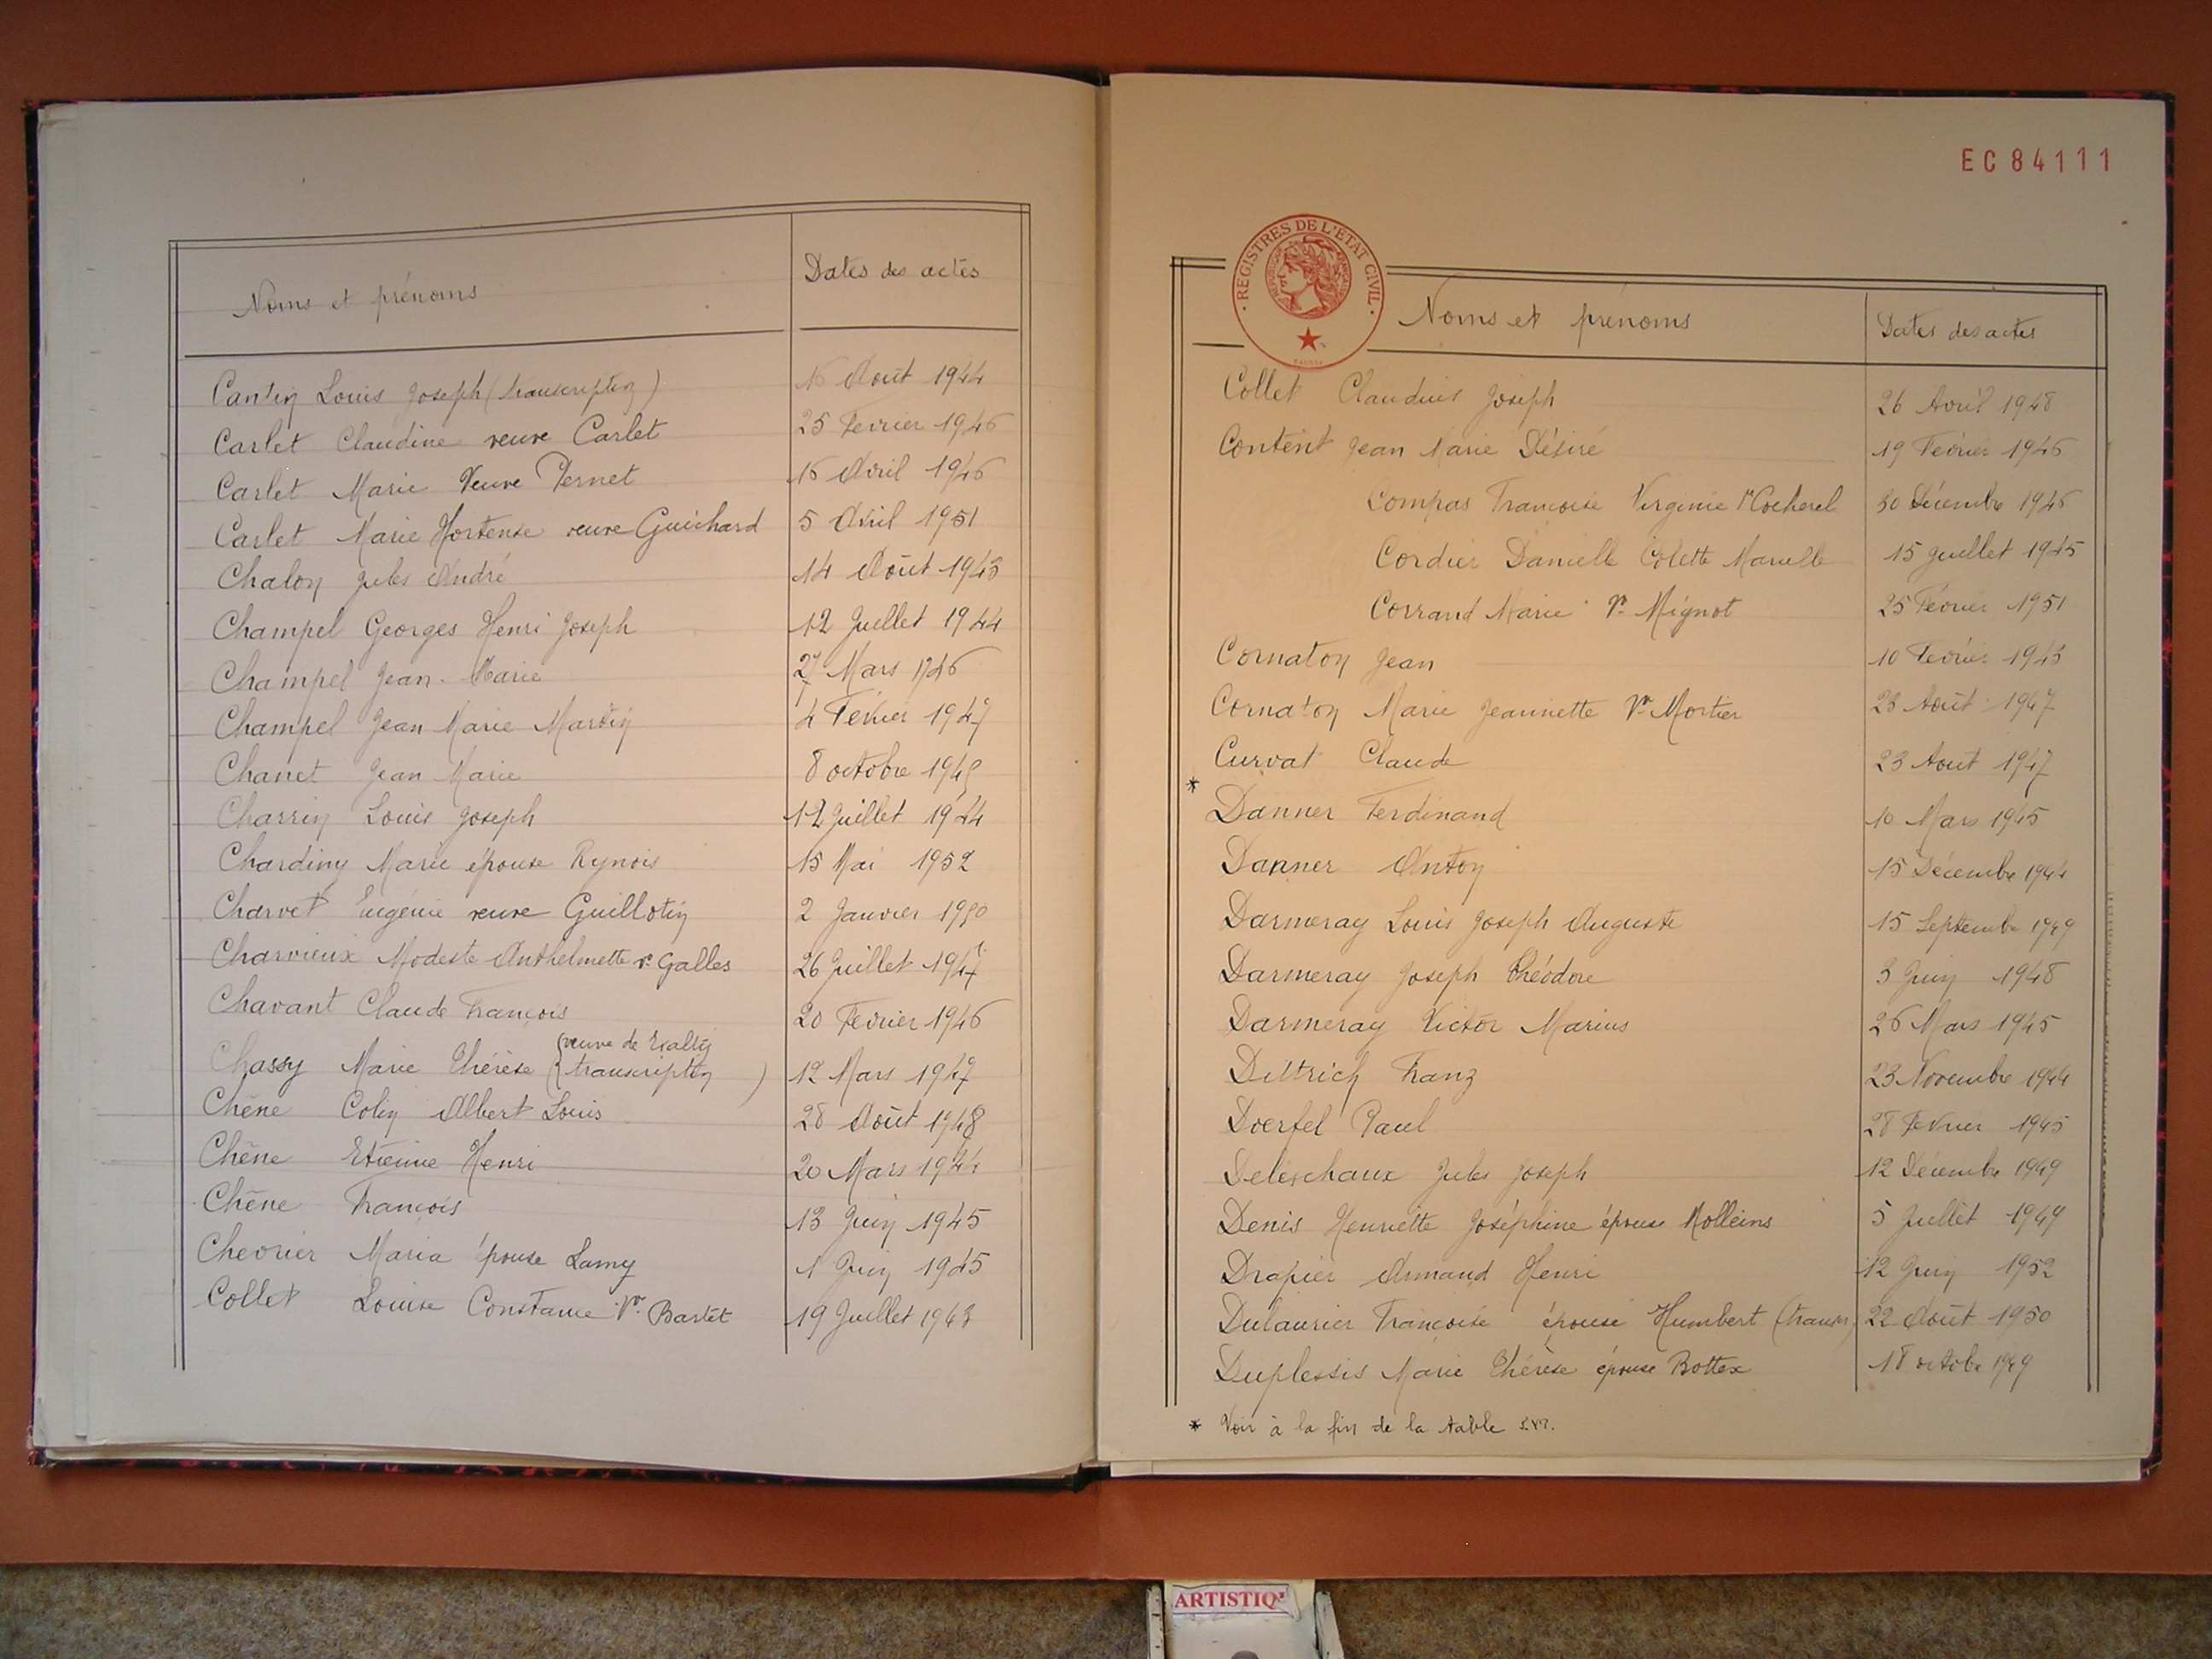 Noms et prénoms Dates des actes
Cantin Louis Joseph (transcription) 16 Août 1944
Carlet Claudine veuve Carlet 25 Fevrier 1946
Carlet Marie Veuve Pernet 16 Avril 1946
Carlet Marie Hortense veuve Guichard 5 Avril 1951
Chalon Jules André 14 Août 1943
Champel Georges Henri Joseph 12 Juillet 1944
Champel Jean-Marie Mars 1946
Champel Jean Marie Martin 4 Février 1947
Chanet Jean Marie 8 octobre
Charrin Louis Joseph 12 Juillet 1944
Chardiny Marie épouse Rynois 15 Mai 1952
Charvet Eugénie veuve Guillotin 2 Janvier 1950
Charvieux Modeste Anthelmette ve Galles 26 Juillet
Chavant Claude François 20 Fevrier 1946
(veuve de
Chassy Marie Thérèse (transcription) 12 Mars 1947
Chêne Colin Albert Louis 28 Août 1948
Chêne Etienne Henri 20 Mars 1944
Chêne François 13 Juin 1945
Chevrier Maria épouse Lamy 1 Juin 1945
Collet Louise Constance Ve Bartet 19 Juillet 1943
EC 84111
REGISTRES DE L'ETAT CIVIL
REPUBLIQUE FRANÇAISE
Noms et prénoms Dates des actes
Collet Claudius Joseph 26 Avril 1948
Content Jean Marie Désiré 19 Février 1946
Compas Françoise Virginie Ve Cocherel 30 Décembre 1946
Cordier Danielle Colette Marcelle 15 Juillet 1945
Corrand Marie Ve Mignot 25 Février 1951
Cornaton Jean 10 Février 1943
Cornaton Marie Jeannette Ve Mortier 28 Août 1947
Curvat Claude 23 Aout 1947
* Danner Ferdinand 10 Mars 1945
Danner Anton 15 Décembre 1944
Darmeray Louis Joseph Auguste 15 Septembre 1949
Darmeray Joseph Théodore 3 Juin 1948
Darmeray Victor Marius 26 Mars 1945
Dittrich Franz 23 Novembre 1944
Doerfel Paul 28 Fevrier 1945
Deleschaux Jules Joseph 12 Décembre 1949
Denis Henriette Joséphine épouse Molleins 5 Juillet 1949
Drapier Armand Henri 12 Juin 1952
Dulaurier Françoise épouse Humbert (transn) 22 Août 1950
Duplessis Marie Thérèse épouse Bottex 18 octobe 1949
* Voir à la fin de la table
ARTISTIQ